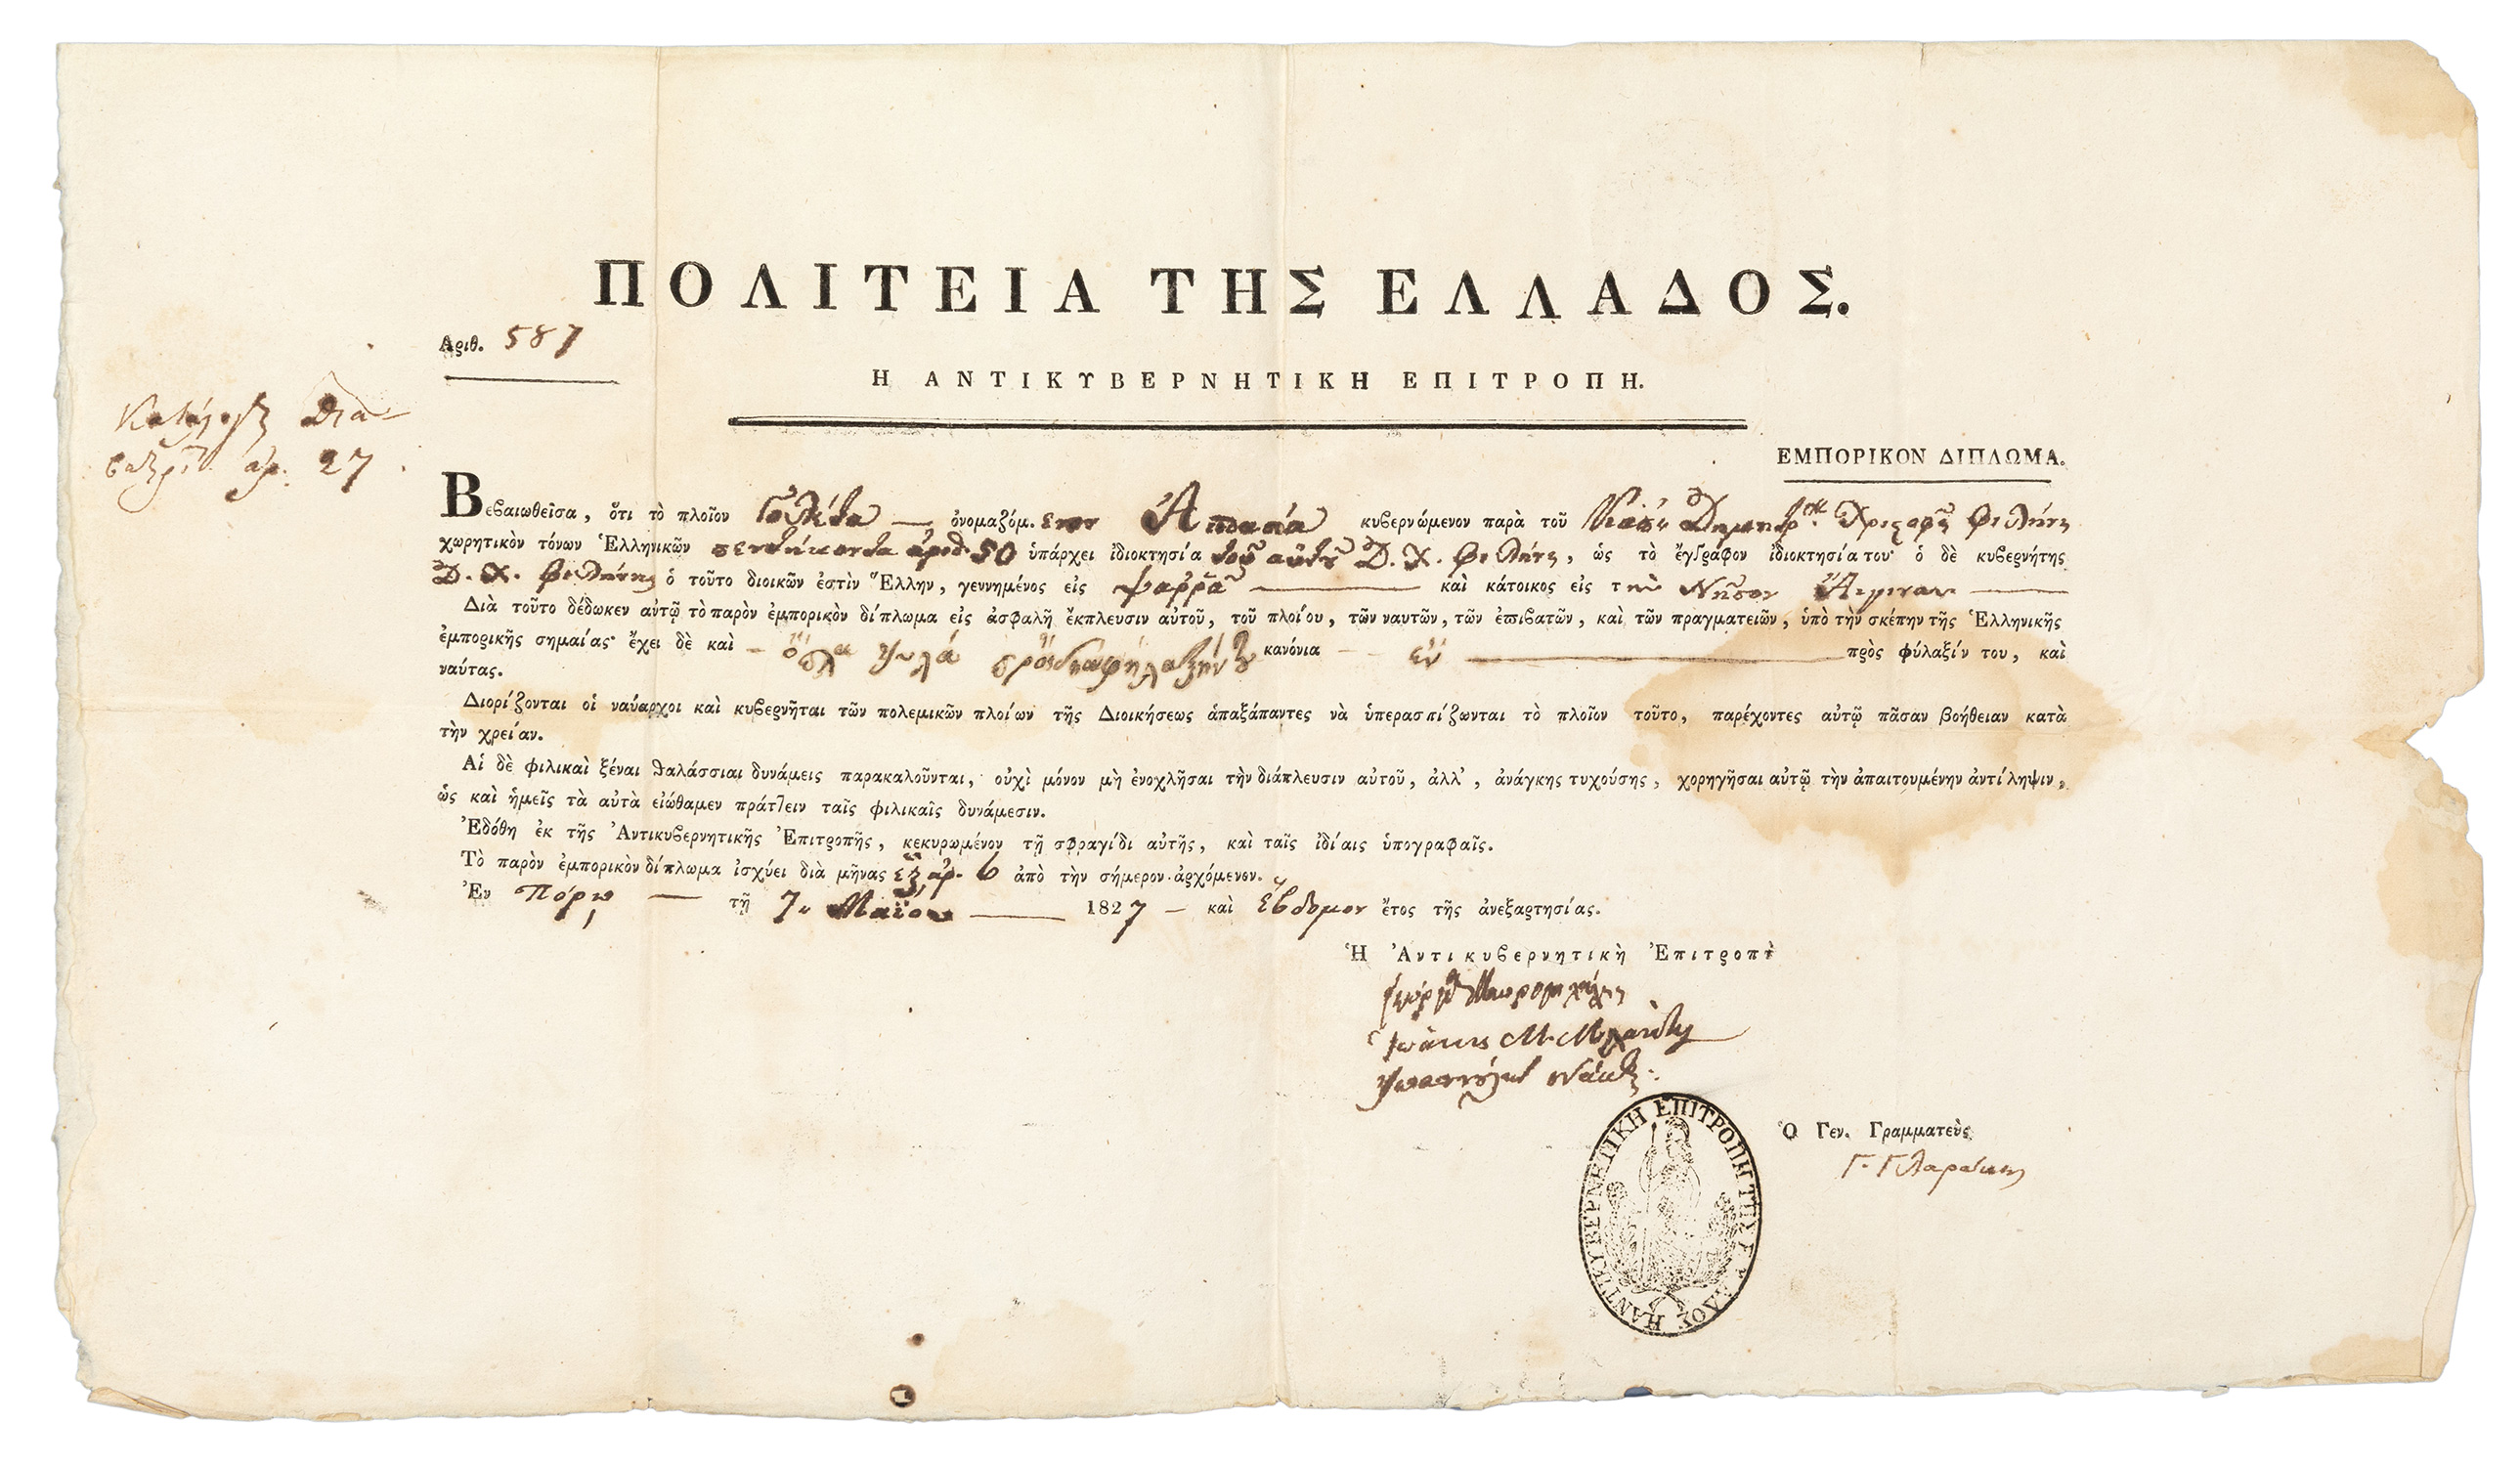 ΠΟΛΙΤΕΙΑ ΤΗΣ ΕΛΛΑΔΟΣ.
Αριθ. 587
Η ΑΝΤΙΚΥΒΕΡΝΗΤΙΚΗ ΕΠΙΤΡΟΠΗ.
αρ. 27
ΕΜΠΟΡΙΚΟΝ ΔΙΠΛΩΜΑ.
Βεβαιωθεῖσα, ὅτι τὸ πλοῖον Γουλέτα — ὀνομαζόμ.ενον κυβερνώμενον παρὰ τοῦ
χωρητικὸν τόνων Ἑλληνικῶν πεντήκοντα ἀριθ. 50 ὑπάρχει ἰδιοκτησία τοῦ αὐτοῦ Δ. Χ. , ὡς τὸ ἔγγραφον ἰδιοκτησία του· ὁ δὲ κυβερνήτης
Δ. Χ. ὁ τοῦτο διοικῶν ἐστὶν Ἕλλην, γεννημένος εἰς Ψαρρὰ — καὶ κάτοικος εἰς τὴν Νῆσον Αἴγιναν —
Διὰ τοῦτο δέδωκεν αὐτῷ τὸ παρὸν ἐμπορικὸν δίπλωμα εἰς ἀσφαλῆ ἔκπλευσιν αὐτοῦ, τοῦ πλοίου, τῶν ναυτῶν, τῶν ἐπιβατῶν, καὶ τῶν πραγματειῶν, ὑπὸ τὴν σκέπην τῆς Ἑλληνικῆς
ἐμπορικῆς σημαίας· ἔχει δὲ καὶ — ὅπλα ψιλὰ κανόνια — ἓν — πρὸς φύλαξίν του, καὶ
ναύτας.
Διορίζονται οἱ ναύαρχοι καὶ κυβερνῆται τῶν πολεμικῶν πλοίων τῆς Διοικήσεως ἁπαξάπαντες νὰ ὑπερασπίζωνται τὸ πλοῖον τοῦτο, παρέχοντες αὐτῷ πᾶσαν βοήθειαν κατὰ
τὴν χρείαν.
Αἱ δὲ φιλικαὶ ξέναι θαλάσσιαι δυνάμεις παρακαλοῦνται, οὐχὶ μόνον μὴ ἐνοχλῆσαι τὴν διάπλευσιν αὐτοῦ, ἀλλ', ἀνάγκης τυχούσης, χορηγῆσαι αὐτῷ τὴν ἀπαιτουμένην ἀντίληψιν,
ὡς καὶ ἡμεῖς τὰ αὐτὰ εἰώθαμεν πράττειν ταῖς φιλικαῖς δυνάμεσιν.
Ἐδόθη ἐκ τῆς Ἀντικυβερνητικῆς Ἐπιτροπῆς, κεκυρωμένον τῇ σφραγίδι αὐτῆς, καὶ ταῖς ἰδίαις ὑπογραφαῖς.
Τὸ παρὸν ἐμπορικὸν δίπλωμα ἰσχύει διὰ μῆνας ἓξ, ἀρ. 6 ἀπὸ τὴν σήμερον ἀρχόμενον.
Ἐν Πόρῳ — τῇ 7 Μαΐου — 1827 — καὶ ἕβδομον ἔτος τῆς ἀνεξαρτησίας.
Ἡ Ἀντικυβερνητικὴ Ἐπιτροπὴ
Γεώργιος Μαυρομιχάλης
Ἰωάννης Μ. Μιλαήτης
Ἰωαννούλης Νάκος
Η ΑΝΤΙΚΥΒΕΡΝΗΤΙΚΗ ΕΠΙΤΡΟΠΗ ΤΗΣ ΕΛΛΑΔΟΣ
Ὁ Γεν. Γραμματεὺς
Γ. Γλαράκης